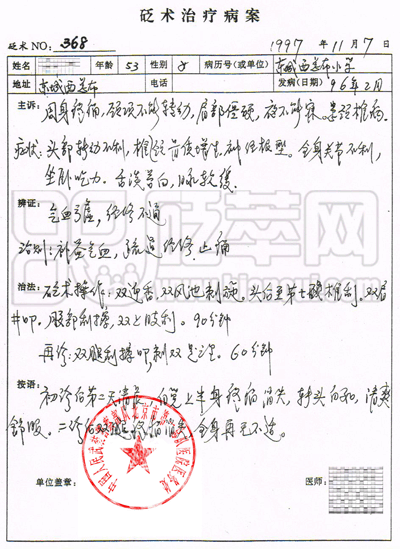 砭术治疗病案
砭术NO: 368 1997年11月7日
姓名 年龄 53 性别 病历号(或单位) 京城西差布小学
地址 京城西差布 电话 发病(日期) 96年2月
主诉: 周身疼痛,颈项不能转动,肩部僵硬,夜不能寐。
症状: 头部转动不利,椎骨质增生,神经根型。全身关节不利,
坐卧吃力。舌淡苔白,脉软缓。
辨证:
气血亏虚,经络不通
治则: 补益气血,疏通经络,止痛
治法: 砭术操作: 双迎香,双风池刺施。头后至第七颈椎刮。双肩
井叩。腰部刮擦,双上肢刮。90分钟
再诊: 双腿刮擦叩刺双 60分钟
按语: 初诊后第二天清晨,自觉上半身疼痛消失,转头自如,清爽
舒服。二诊后双腿疼痛消失,全身再无不适。
单位盖章: 医师:
砭萃网